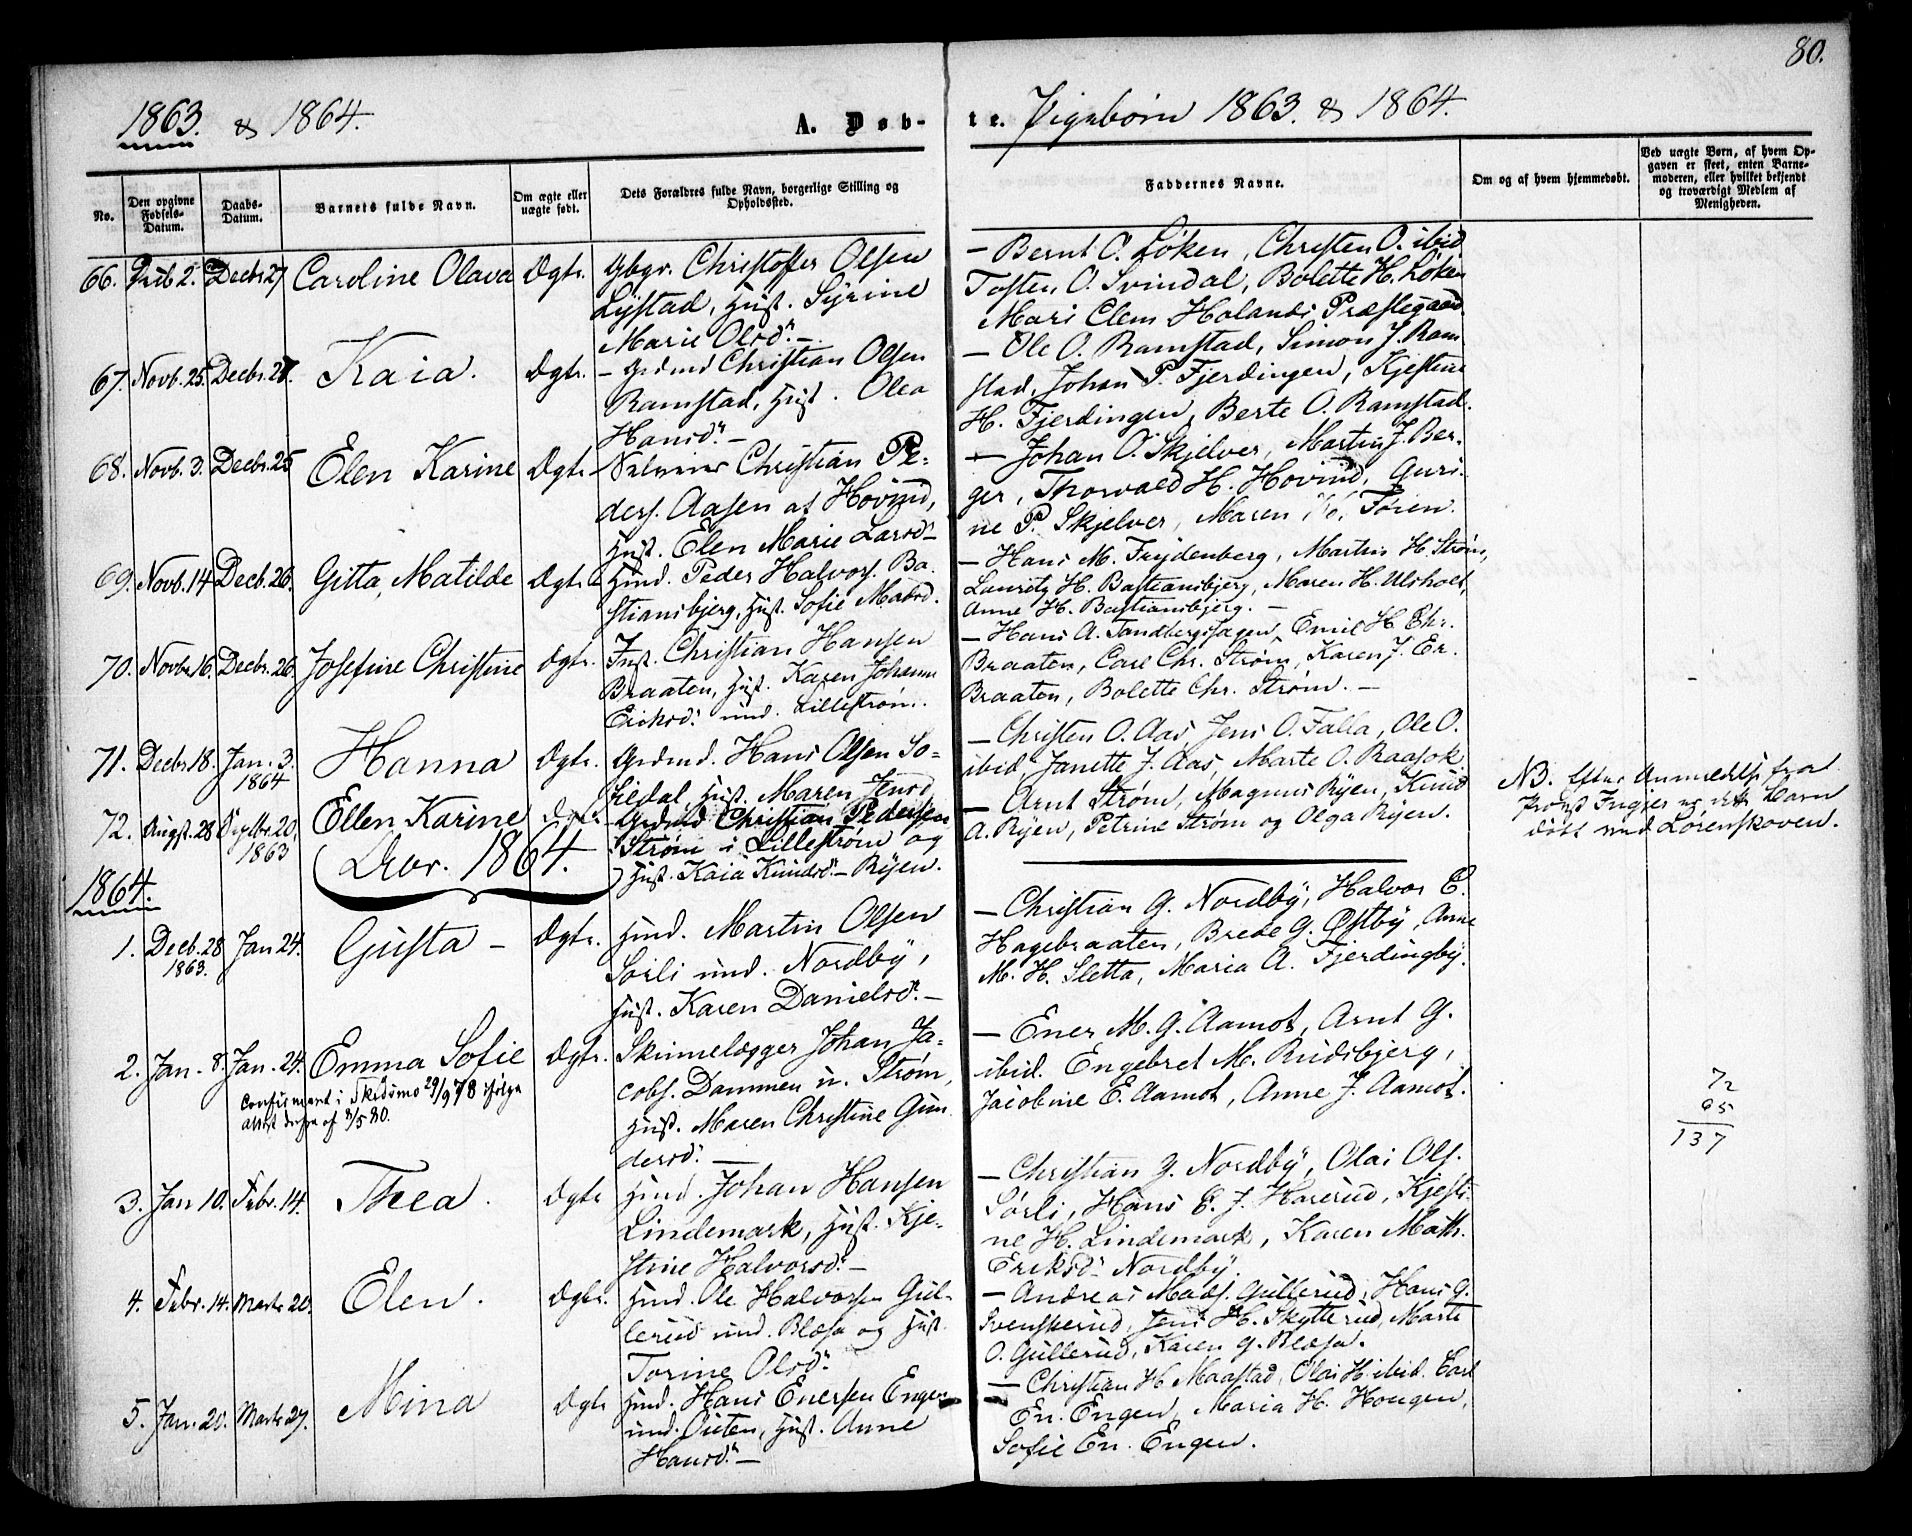 80.
1863. & 1864.
A. Døb-
te. Pigebørn 1863. & 1864.
No.
Den opgivne Fødsels-Datum.
Daabs-Datum.
Barnets fulde Navn.
Om ægte eller uægte født.
Dets Forældres fulde Navn, borgerlige Stilling og Opholdssted.
Faddernes Navne.
Om og af hvem hjemmedøbt.
Ved uægte Børn, af hvem Opgaven er skeet, enten Barnemoderen, eller hvilket bekjendt og troværdigt Medlem af Menigheden.
66. 2. Decbr. 27 Caroline Olava Dgtr. Gbgr. Christoffer Olsen
Lystad, Hust. Syrine
Marie Olsd. —
— Bernt O. Løken, Christen O. ibid
Tosten O. Svindal, Bolette H. Løken
Mari Clem Holands Præstegaard.
67. Novb. 25. Decbr. 27. Kaia. Dgtr. — Grdmd Christian Olsen
Ramstad, Hust. Olea
Hansd. —
— Ole O. Ramstad, Simon J. Ram
stad, Johan P. Fjerdingen, Kjestine
H. Fjerdingen, Berte O. Ramstad.
68. Novb. 3. Decbr. 25 Elen Karine Dgtr. Christian Pe-
ders. Aasen af Hovind,
Hust. Elen Marie Larsd. —
— Johan O. Skjelver, Martin J. Ber-
ger, Thorvald H. Hovind, Guri-
ne P. Skjelver, Maren Tøien.
69. Novb. 14 Decb. 26. Gitta Matilde Dgtr. Hmd. Peder Halvors. Ba-
stiansbjerg, Hust. Sofie Matsd.
— Hans M. Frydenberg, Martin H. Strøm,
Lauritz H. Bastiansbjerg, Maren H. Ulsholt,
Anne H. Bastiansbjerg. —
70. Novbr 16. Decbr. 26. Josefine Christine Dgtr. Inst. Christian Hansen
Braaten, Hust. Karen Johanne
Eriksd. und. Lillestrøm.
— Hans A. Tandbergshagen, Emil H. Chr.
Braaten, Carl Chr. Strøm, Karen J. Er.
Braaten, Bolette Chr. Strøm. —
71. Decbr 18. Jan. 3. 1864 Hanna Dgtr. Grdmd. Hans Olsen So-
lildal Hust. Maren Jensd
— Christen O. Aas, Jens O. Falla, Ole O.
ibid, Janette J. Aas, Marte O. Raasok.
72. Augst. 28 20, 1863 Ellen Karine Dgtr. Grdmd Christian Pedersen
Strøm i Lillestrøm og
Hust. Kaia Knudsd. — Ryen.
— Arnt Strøm, Magnus Ryen, Knud
A. Ryen, Petrine Strøm og Olga Ryen.
NB. Efter Anmeldelse fra
Provst er dette Barn
døbt ved Lørenskoven.
1864.
1864.
1. Decb. 28 1863. Jan 24. Gusta — Dgtr. Hmd. Martin Olsen
Sørli und. Nordby,
Hust. Karen Danielsd. —
— Christian G. Nordby, Halvor E.
Hagebraaten, Brede G. Østby, Anne
M. H. Sletta, Maria A. Fjerdingby.
2. Jan. 8. Jan. 24. Emma Sofie Dgtr. Skinnelægger Johan Ja-
cobs. Dammen u. Strøm,
Hust. Maren Christine Gun
dersd. —
Confirmeret i Skedsmo 29/9 78 ifølge
Attest af 3/5 80.
— Ener M. G. Aamot, Arnt G.
ibid. Engebret M. Rudsbjerg,
Jacobine E. Aamot, Anne J. Aamot.
72
65
137
3. Jan 10. Febr. 14. Thea. Dgtr Hmd. Johan Hansen
Lindemark, Hust. Kje-
stine Halvorsd. —
— Christian G. Nordby, Olai Ols.
Sørli, Hans E. J. Harerud, Kjesti-
ne H. Lindemark, Karen Math.
Eriksd. Nordby.
4. Febr. 14. Marts 20. Elen. Dgtr. Hmd. Ole Halvorsen Gul-
lerud und. Blæsa og Hust.
Torine Olsd.
— Andreas Mads. Gullerud, Hans G.
Svenskerud, Jens H. Skytterud, Marte
O. Gullerud, Karen G. Blæsa.
5. Jan. 20. Marts 27. Mina Dgtr Hmd. Hans Enersen Engen
und. Outen, Hust. Anne
Hansd. —
— Christian H Maastad, Olai H. ibid. Carl
En. Engen, Maria H. Hougen,
Sofie En. Engen.